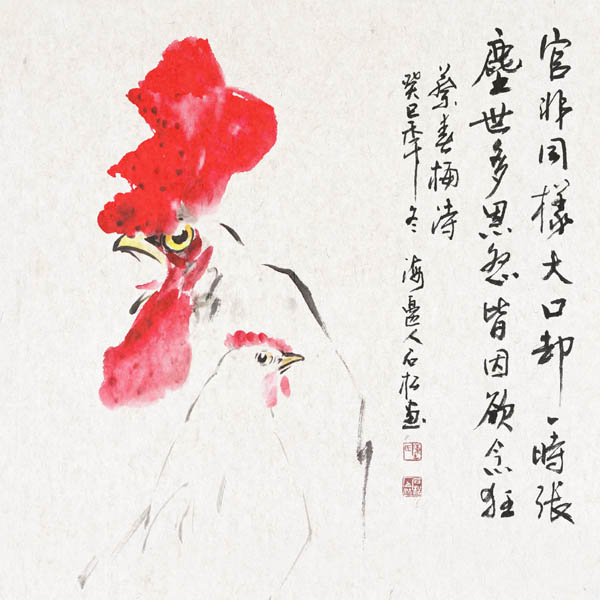 官非同樣大口却一時張
塵世多恩怨皆因欲念狂
蔡春诗
癸巳年冬 海邊人石松画